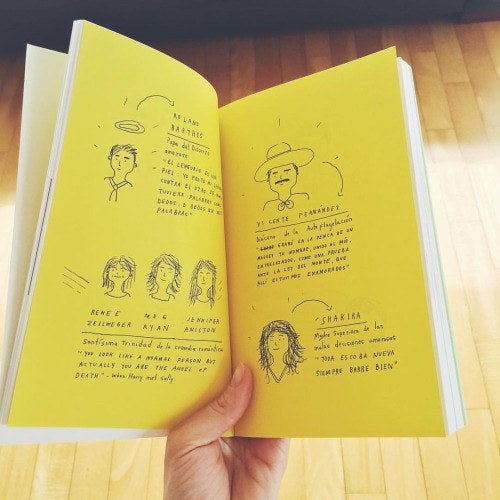 ROLAND
BARTHES
Papa del Discurso
amoroso
"EL LENGUAJE ES UNA
PIEL. YO FROTO MI LENGUAJE
CONTRA EL OTRO. ES COMO SI
TUVIERA PALABRAS COMO
DEDOS, O DEDOS EN MIS
PALABRAS"
RENEÉ
ZELLWEGER
MEG
RYAN
JENNIFER
ANISTON
Santísima Trinidad de la comedia romántica
"YOU LOOK LIKE A NORMAL PERSON BUT
ACTUALLY YOU ARE THE ANGEL OF
DEATH" - When Harry met Sally
VICENTE FERNÁNDEZ
Diácono de la Autoflagelación
GRABÉ EN LA PENCA DE UN
MAGUEY TU NOMBRE, UNIDO AL MÍO,
ENTRELAZADOS, COMO UNA PRUEBA
ANTE LA LEY DEL MONTE, QUE
ALLÍ ESTUVIMOS ENAMORADOS"
SHAKIRA
Madre Superiora de las
malas decisiones amorosas
"TODA ESCOBA NUEVA
SIEMPRE BARRE BIEN"